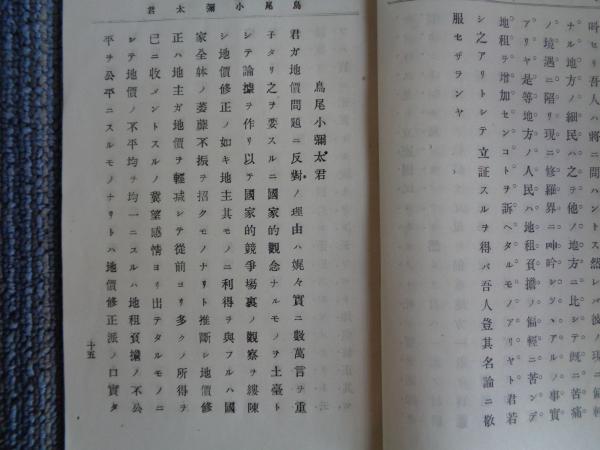 呵セリ吾人ハ將ニ問ハントス然レバ彼ノ現ニ偏輕
ナル地方ノ細民ハ之テ他ノ地方ニ比シテ既ニ苦痛
ノ境遇ニ陷リ現ニ修羅界ニ呻吟シツヽアルノ事實
アリヤ是等地方ノ人民ハ地租負擔ノ偏輕ニ苦ンデ
地租ヲ增加センコトヲ訴ヘタルモノアリヤト君若
シ之アリトシテ立証スルヲ得バ吾人豈其名論ニ敬
服セザランヤ
鳥尾小彌太君
鳥尾小彌太君
君ガ地價問題ニ反對ノ理由ハ娓々實ニ數萬言ヲ重
子タリ之ヲ要スルニ國家的觀念ナルモノヲ土臺ト
シテ論據ヲ作リ以テ國家的競爭塲裏ノ觀察ヲ縷陳
シ地價修正ノ如キ地主其モノニ利得ヲ與フルハ國
家全躰ノ萎靡不振ヲ招クモノナリト推斷シ地價修
正ハ地主ガ地價ヲ輕减シテ從前ヨリ多クノ所得ヲ
己ニ收メントスルノ冀望感情ヨリ出テタルモノニ
シテ地價ノ不平均ヲ均一ニスルハ地租負擔ノ不公
平ヲ公平ニスルモノナリトハ地價修正派ノ口實タ
十五